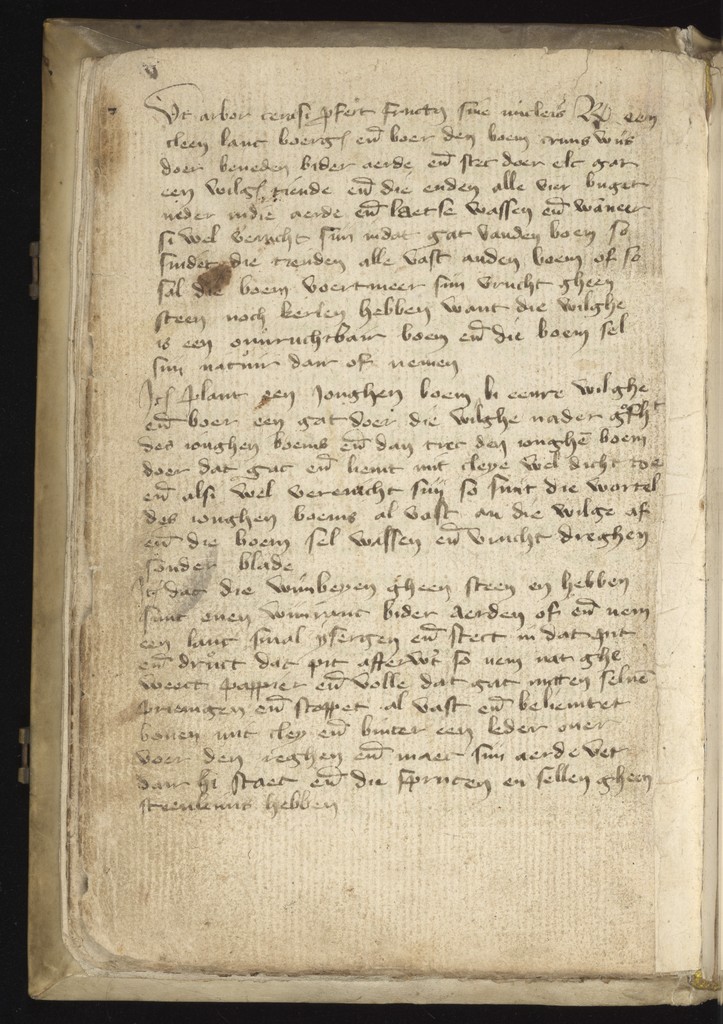 Vt arbor cerasi pfert fructu sine nucleis R een
cleen lanc boerg en boer den boem cruus wiis
doer beneden bider aerde en stec doer elc gat
een wilge tiende en die enden alle vier buget
neder in die aerde en laetse wassen en waneer
si wel verwacht siin in dat gat vanden boem so
snidet die tienden alle vast anden boem of so
sal die boem voertmeer siin vrucht gheen
steen noch kerlen hebben want die wilghe
is een onvruchtbair boem en die boem sel
siin natuir dair of nemen
Plant een jonghen boem bi eenre wilghe
en boer een gat doer die wilghe nader
des jonghen boems en dan trec den jonghe boem
doer dat gat en liemt mit cleye wel dicht toe
en alst wel verwacht siin so snit die wortel
des jonghen boems al vast an die wilge af
en die boem sel wassen en vrucht dreghen
sonder blade
dat die wiinbeyen gheen steen en hebben
snit enen wiinranc bider aerden of en nem
een lanc smal ysergen en stect in dat pit
en druct dat pit afterwt so nem nat ghe
weect pappier en volle dat gat mitten selve
priemgen en stoppet al vast en beliemtet
boven mit cley en binter een leder over
voer den reghen en maec siin aerde vet
dair hi staet en die spruten en sellen gheen
hebben